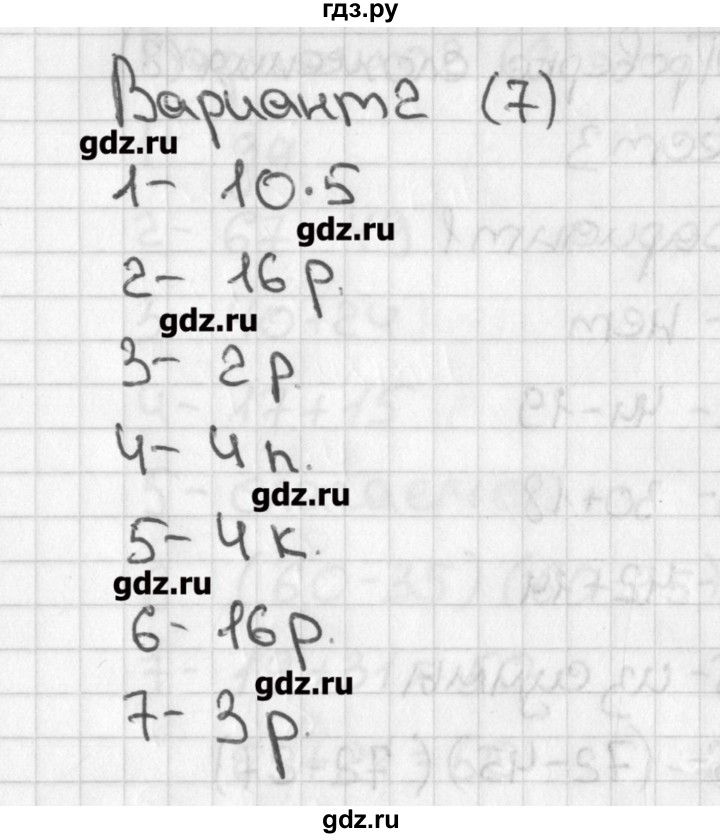 гдз.ру
Вариант 2 (7)
gdz.ru
1- 10·5
gdz.ru
2- 16 р.
gdz.ru
3- 2 р.
4- 4 п.
gdz.ru
5- 4 к.
gdz.ru
6- 16 р.
gdz.ru
7- 3 р.
gdz.ru